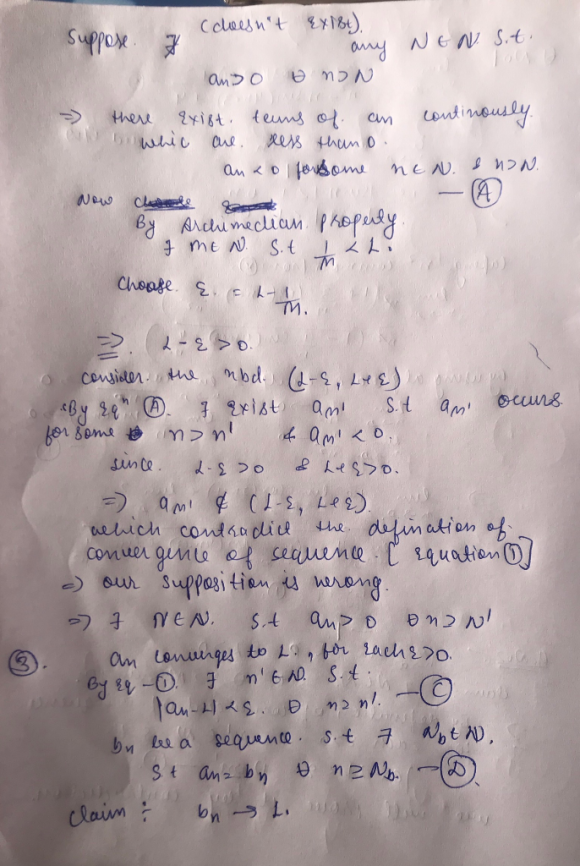 (doesn't exist).
Suppose ∄ any N ∈ N s.t.
an > 0 ∀ n > N
⇒ there exist terms of an continously
whic are less than 0.
an < 0 for some n ∈ N. & n > N.
— Ⓐ
Now
By Archimedian property
∃ m ∈ N s.t 1/m < L.
Choose ε = L - 1/m.
⇒ L - ε > 0.
consider the nbd. (L-ε, L+ε)
By Eqⁿ Ⓐ. ∃ exist am' s.t am' occurs
for some n > n' & am' < 0.
since L-ε > 0 & L+ε > 0.
⇒ am' ∉ (L-ε, L+ε)
which contradict the defination of
convergence of sequence. [equation ①]
⇒ our supposition is wrong.
⇒ ∃ N ∈ N. s.t an > 0 ∀ n > N'
③. an converges to L., for each ε > 0.
By eq - ①. ∃ n' ∈ N. s.t.
|an - L| < ε. ∀ n ≥ n'. — Ⓒ
bn be a sequence s.t ∃ Nb ∈ N,
st an = bn ∀ n ≥ Nb. — Ⓓ
Claim :- bn → L.